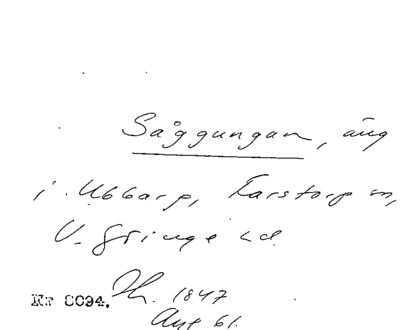 Såggungan, äng
i Ubbarp, Farstorp sn,
V. Göinge hd.
Nr 8094. Th. 1847
Ant 61.